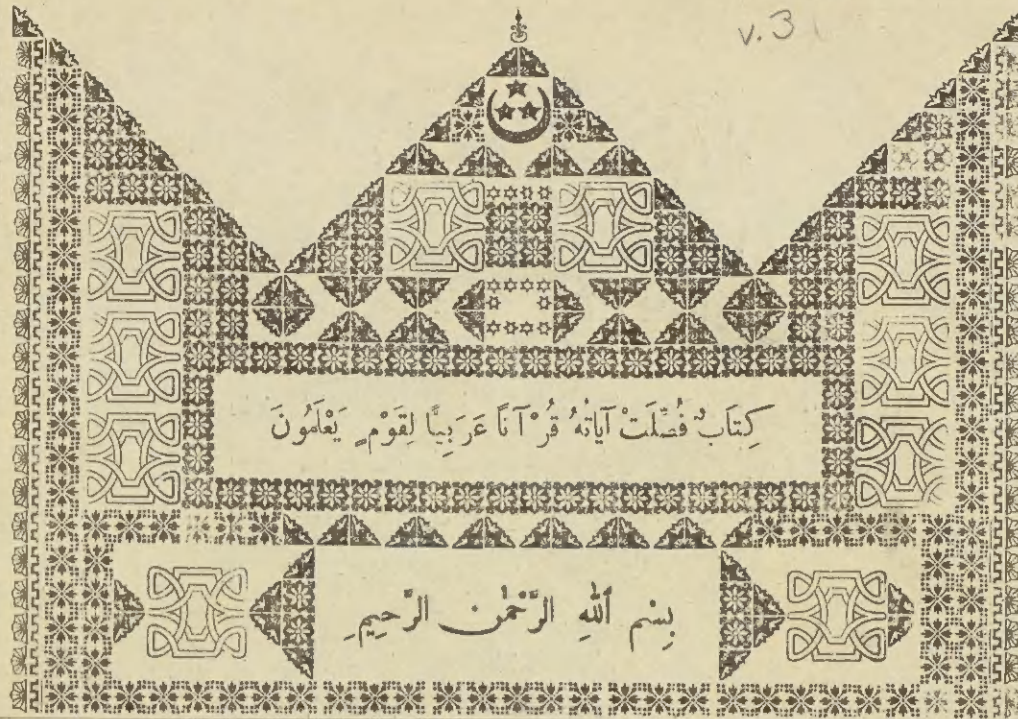 v.3
كِتَابٌ فُصِّلَتْ آيَاتُهُ قُرْآنًا عَرَبِيًّا لِقَوْمٍ يَعْلَمُونَ
بِسْمِ ٱللّٰهِ الرَّحْمٰنِ الرَّحِيمِ